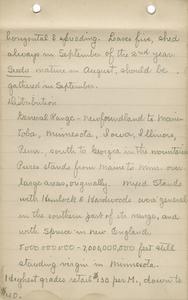 horizontal & spreading. Leaves five, shed
always in September of the 2nd year.
Seeds mature in August, should be
gathered in September.
Distribution
General Range - Newfoundland to Mani-
toba, Minnesota, Iowa, Illinois,
Penn. south to Georgia in the mountains
Pures stands from Maine to Minn. over
large areas, originally. Mixed Stands
with Hemlock & Hardwoods were general
in the southern part of its range, and
with Spruce in New England.
- 2,000,000,000 feet still
standing virgin in Minnesota.
Highest grades retail $150 per M, down to